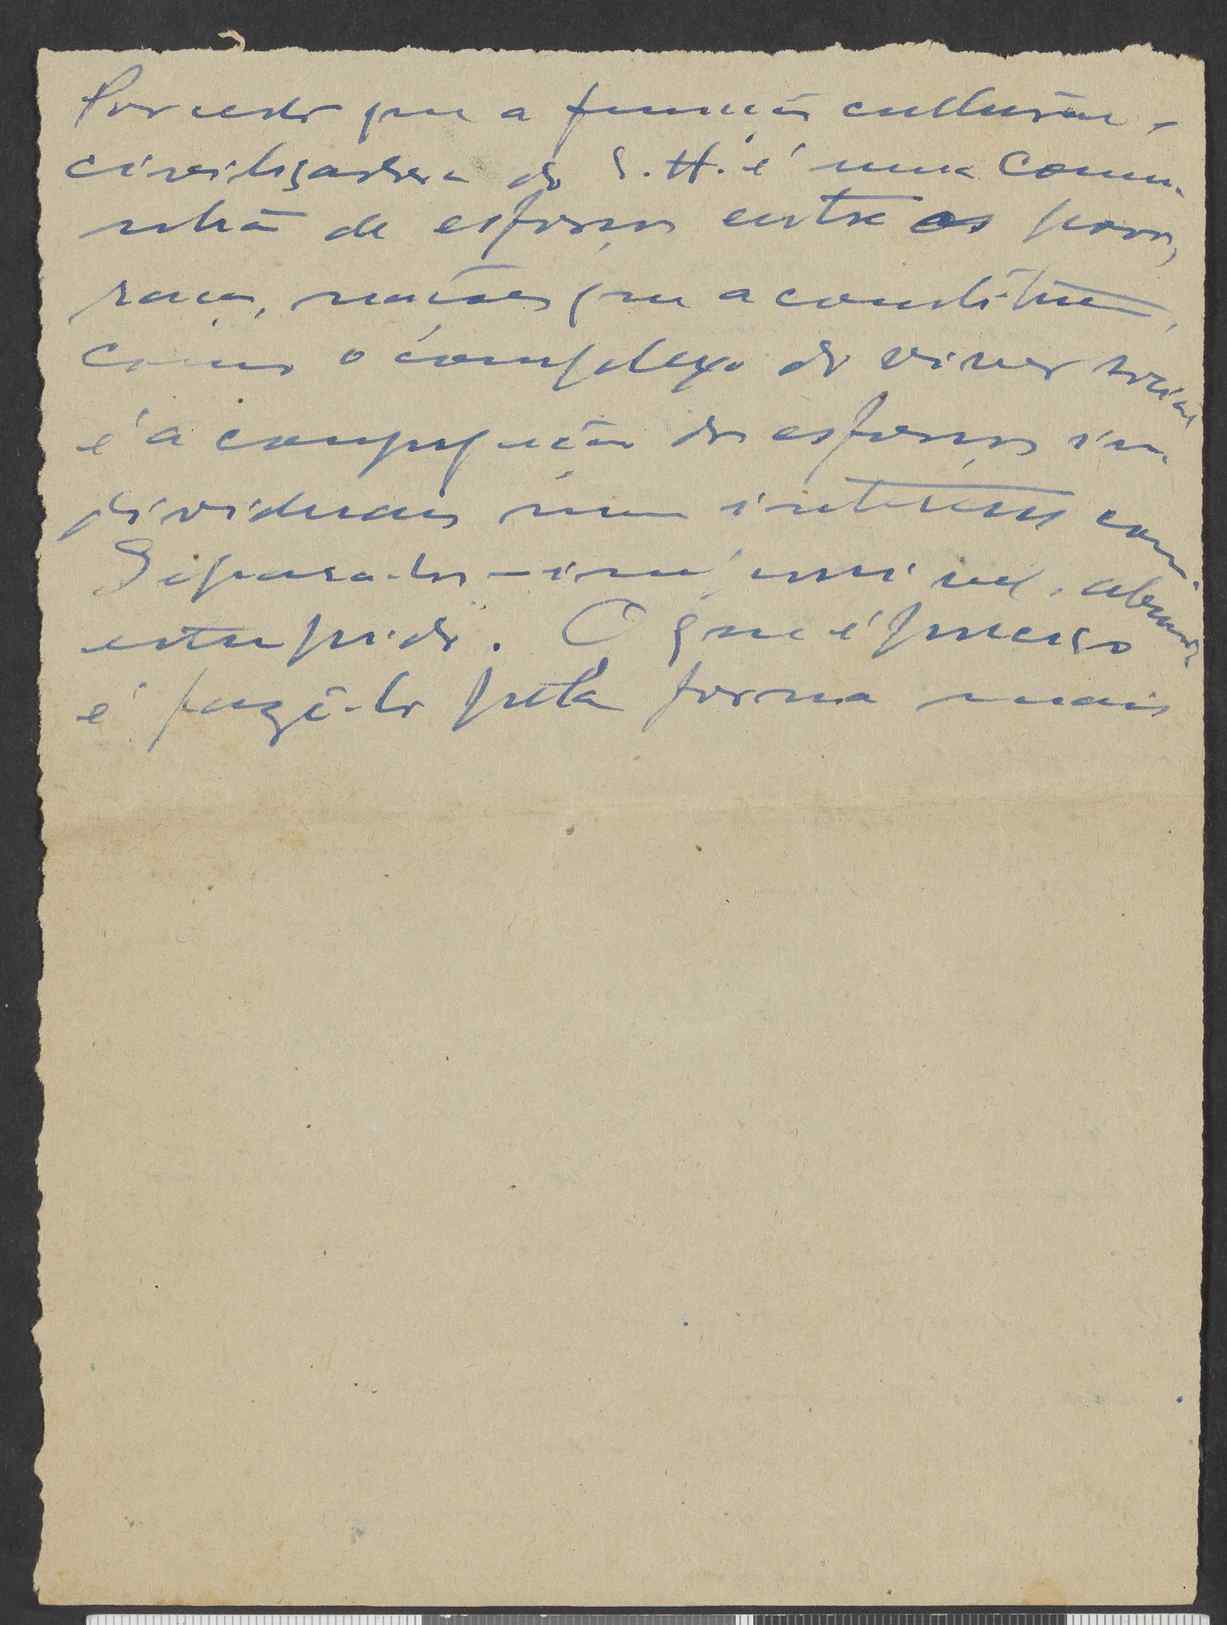 Por certo que a função cultural e
civilizadora do S. H. é uma comu-
nhão de esforços entre os povos,
raças, nações que a constituem,
como o complexo do viver social
é a conjugação dos esforços in-
dividuais num interesse com.
Separa-los - inadmissivel, absurdo
estupido. O que é preciso
é fazê-lo pela forma mais